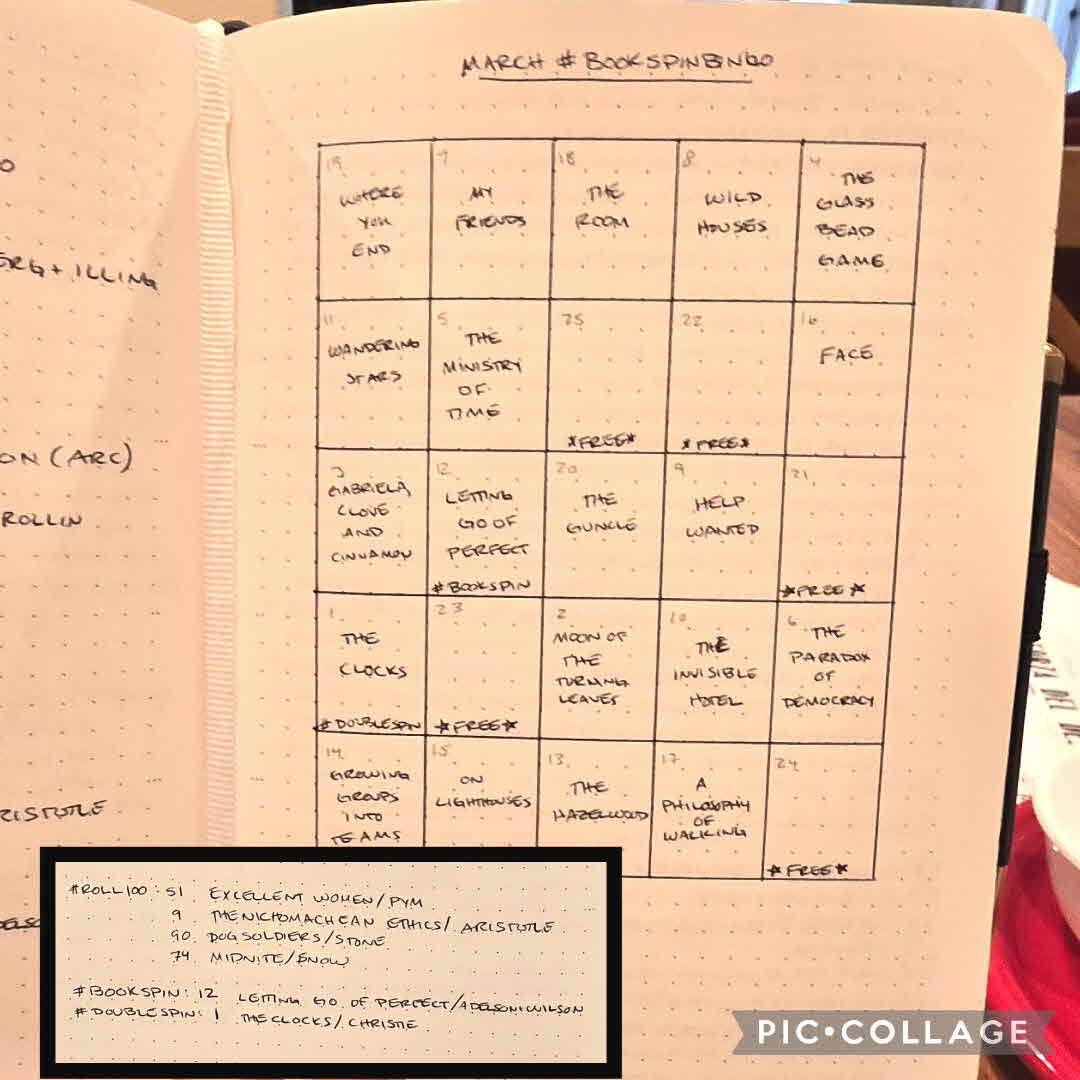 MARCH #BOOKSPINBINGO
19
WHERE
YOU
END
7
MY
FRIENDS
18
THE
ROOM
8
WILD
HOUSES
4
THE
GLASS
BEAD
GAME
11
WANDERING
STARS
5
THE
MINISTRY
OF
TIME
25
*FREE*
22
*FREE*
16
FACE
3
GABRIELA,
CLOVE
AND
CINNAMON
12
LETTING
GO OF
PERFECT
#BOOKSPIN
20
THE
GUNCLE
9
HELP
WANTED
21
*FREE*
1
THE
CLOCKS
#DOUBLESPIN
23
*FREE*
2
MOON OF
THE
TURNING
LEAVES
10
THE
INVISIBLE
HOTEL
6
THE
PARADOX
OF
DEMOCRACY
14
GROWING
GROUPS
INTO
TEAMS
15
ON
LIGHTHOUSES
13
THE
HAZELWOOD
17
A
PHILOSOPHY
OF
WALKING
24
*FREE*
ERG + ILLING
ON (ARC)
ROLLIN
RISTOTLE
#ROLL100: 51 EXCELLENT WOMEN/PYM
9 THE NICHOMACHEAN ETHICS/ARISTOTLE
90 DOG SOLDIERS/STONE
74 MIDNITE/SNOW
#BOOKSPIN: 12 LETTING GO OF PERFECT/ADELSON+WILSON
#DOUBLESPIN: 1 THE CLOCKS/CHRISTIE
PIC•COLLAGE